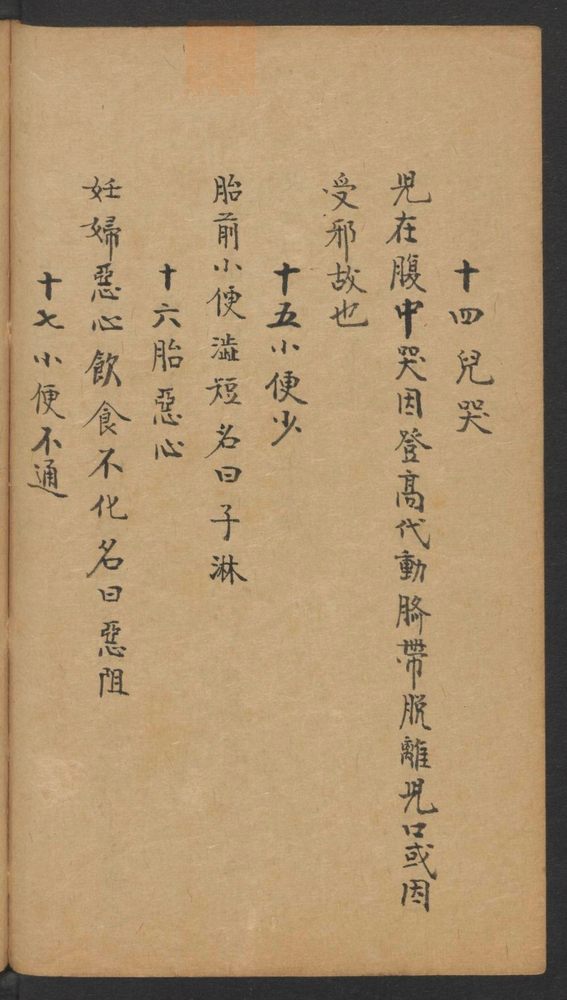 十四兒哭
児在腹中哭因登高代動臍帶脱離児口或因
受邪故也
十五小便少
胎前小便澁短名曰子淋
十六胎惡心
妊婦惡心飲食不化名曰惡阻
十七小便不通